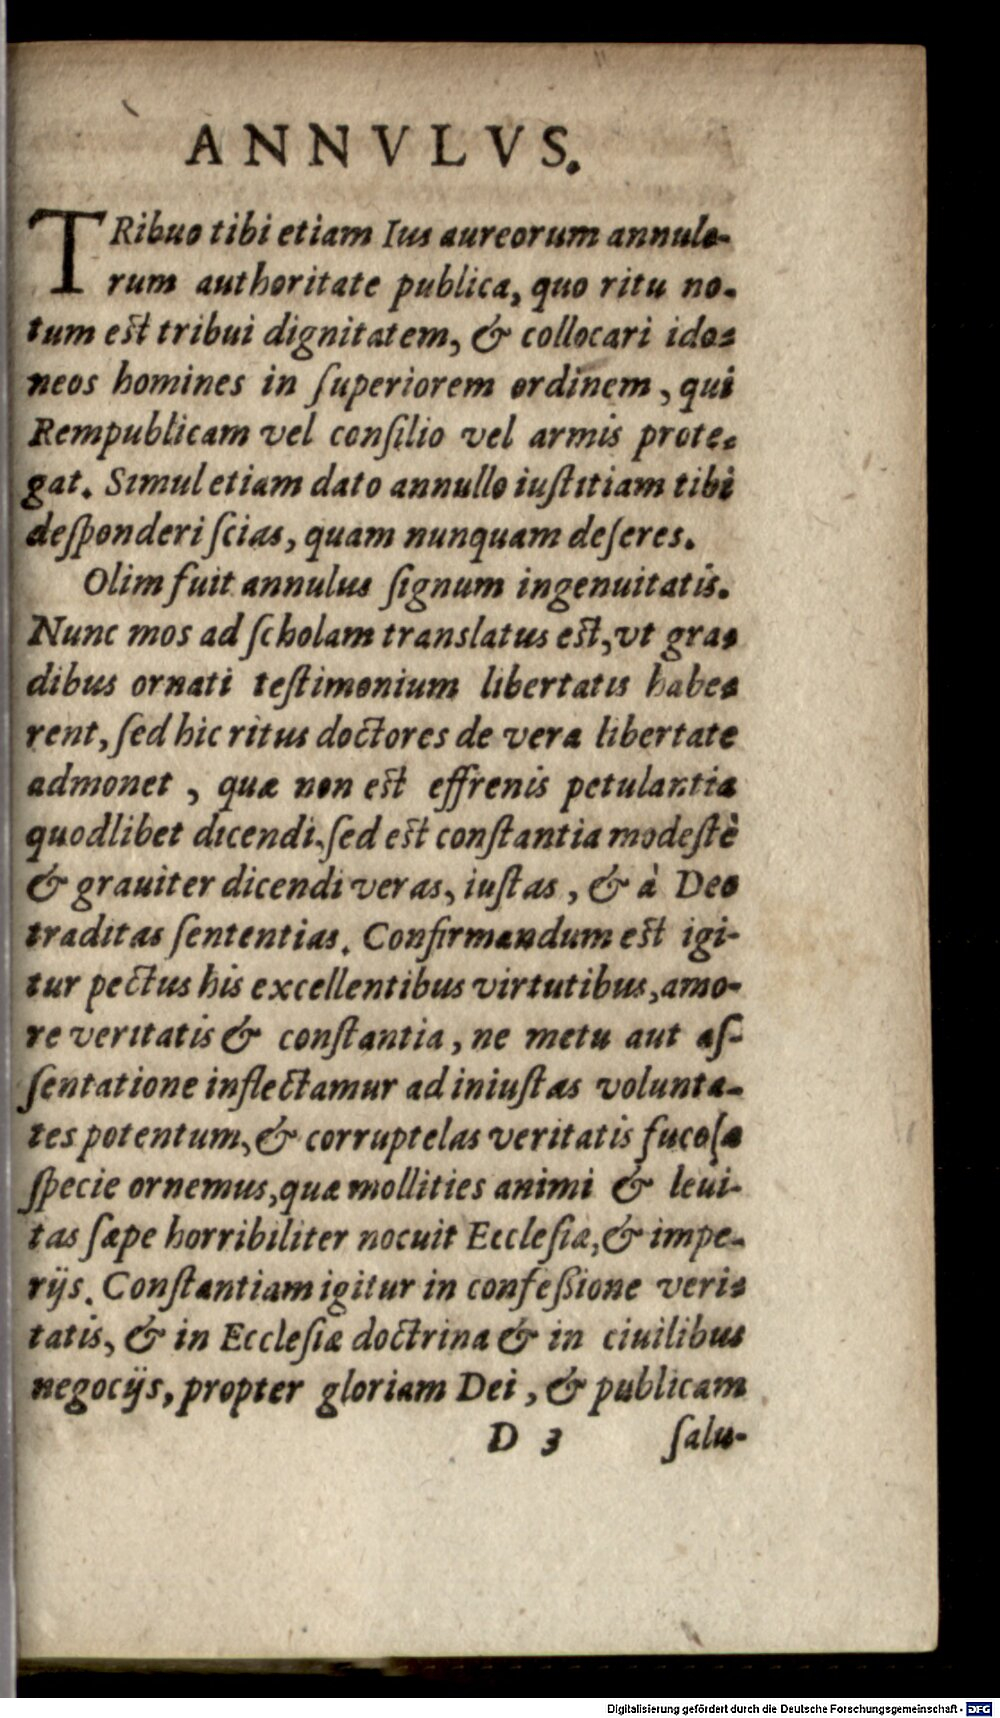 ANNVLVS.
TRibuo tibi etiam Ius aureorum annulo-
rum authoritate publica, quo ritu no-
tum est tribui dignitatem, & collocari ido-
neos homines in ſuperiorem ordinem, qui
Rempublicam vel conſilio vel armis prote-
gat. Simul etiam dato annullo iuſtitiam tibi
deſponderi ſcias, quam nunquam deſeres.
Olim fuit annulus ſignum ingenuitatis.
Nunc mos ad ſcholam translatus eſt, vt gra-
dibus ornati teſtimonium libertatis habe-
rent, ſed hic ritus doctores de vera libertate
admonet, quæ non eſt effrenis petulantia
quodlibet dicendi, ſed eſt conſtantia modeſtè
& grauiter dicendi veras, iuſtas, & à Deo
traditas ſententias. Confirmandum eſt igi-
tur pectus his excellentibus virtutibus, amo-
re veritatis & conſtantia, ne metu aut aſ-
ſentatione inflectamur ad iniuſtas volunta-
tes potentum, & corruptelas veritatis fucoſa
ſpecie ornemus, quæ mollities animi & leui-
tas ſæpe horribiliter nocuit Eccleſiæ, & impe-
rijs. Conſtantiam igitur in confeßione veri-
tatis, & in Eccleſiæ doctrina & in ciuilibus
negocijs, propter gloriam Dei, & publicam
D 3 ſalu-
Digitalisierung gefördert durch die Deutsche Forschungsgemeinschaft - DFG